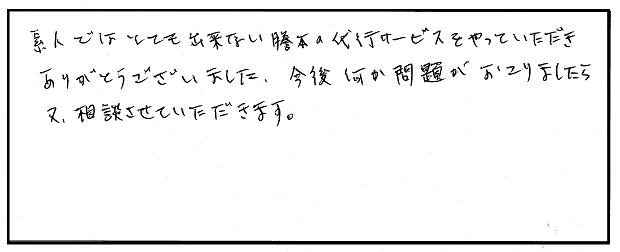 素人ではとても出来ない謄本の代行サービスをやっていただき
ありがとうございました、今後何か問題がおこりましたら
又、相談させていただきます。